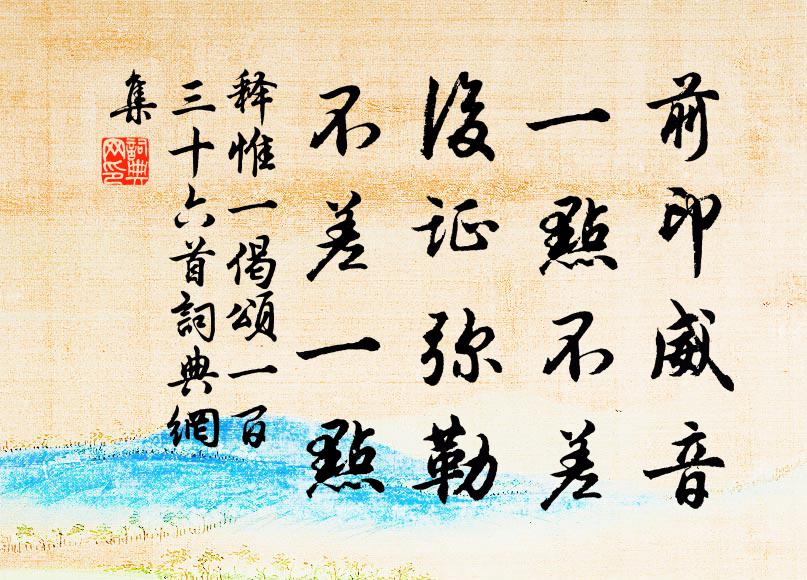 前印威音
一點不差
後证弥勒
不差一點
释惟一偈頌一百
三十六首詞典網
集
詞典
网印